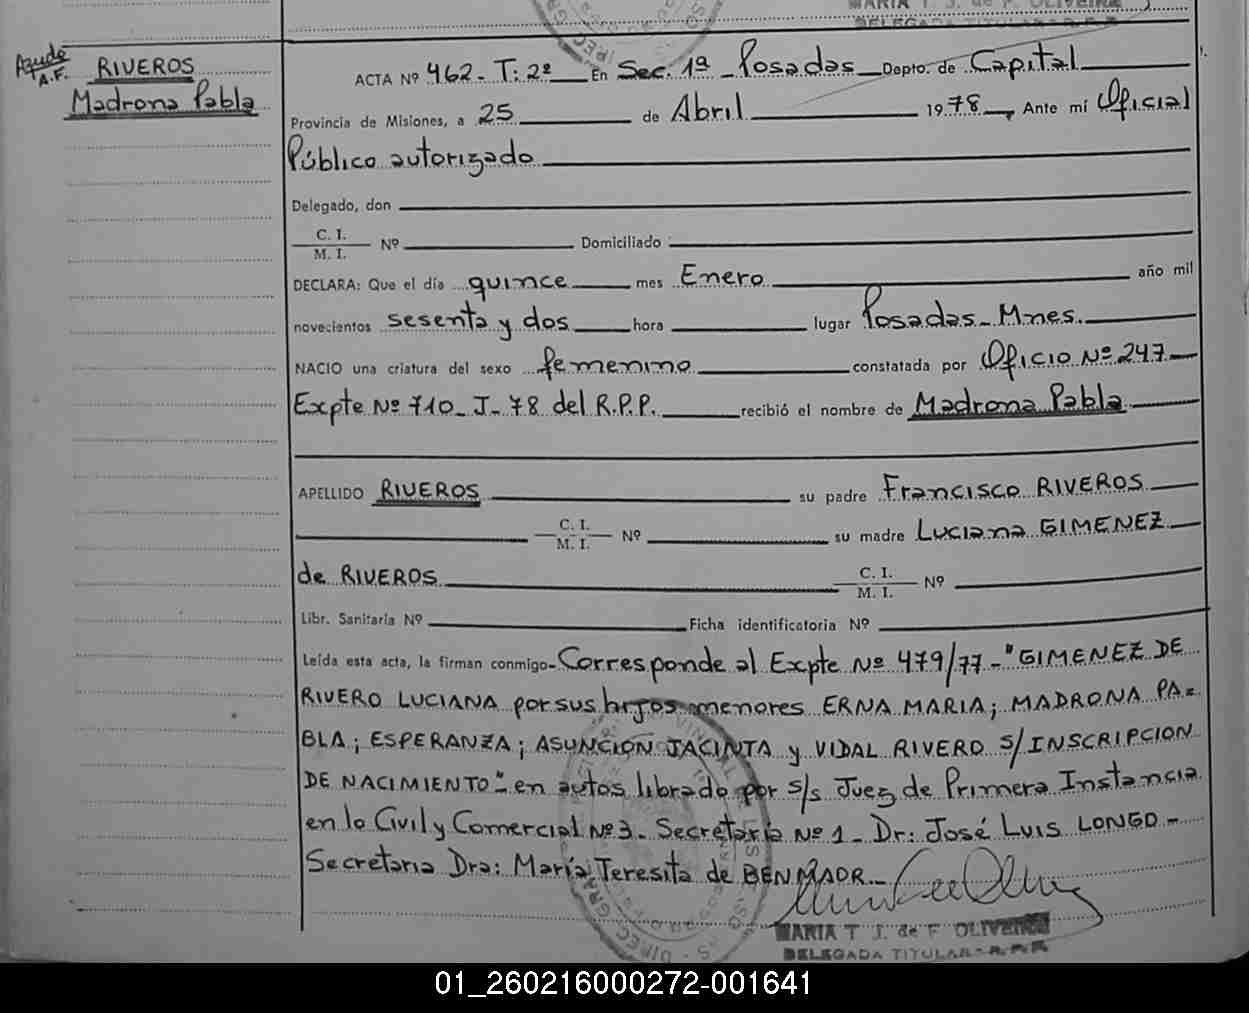 MARIA T. J. de F. OLIVEIRA
DELEGADA TITULAR
A.F.
RIVEROS
Madrona Pabla
ACTA Nº 462- T: 2º En Sec. 1ª Posadas Depto. de Capital
Provincia de Misiones, a 25 de Abril 1978, Ante mí Oficial
Público autorizado
Delegado, don
C. I.
M. I. Nº Domiciliado
DECLARA: Que el día quince mes Enero año mil
novecientos sesenta y dos hora lugar Posadas- Mnes.
NACIO una criatura del sexo femenino constatada por Oficio Nº 247
Expte Nº 710- J- 78 del R.P.P. recibió el nombre de Madrona Pabla
APELLIDO RIVEROS su padre Francisco RIVEROS
C. I.
M. I. Nº su madre Luciana GIMENEZ
de RIVEROS C. I.
M. I. Nº
Libr. Sanitaria Nº Ficha identificatoria Nº
Leída esta acta, la firman conmigo- Corresponde al Expte Nº 479/77-"GIMENEZ DE
RIVERO LUCIANA por sus hijos menores ERNA MARIA; MADRONA PA=
BLA; ESPERANZA; ASUNCION JACINTA y VIDAL RIVERO S/INSCRIPCION
DE NACIMIENTO"- en autos librado por S/s Juez de Primera Instancia
en lo Civil y Comercial Nº3- Secretaría Nº1- Dr: José LUIS LONGO-
Secretaria Dra: María Teresita de BENMAOR-
MARIA T. J. de F. OLIVEIRA
DELEGADA TITULAR
01_260216000272-001641